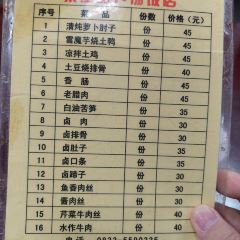 序号 菜品 份数 价格（元）
1 清炖萝卜肘子 份 45
2 雪魔芋烧土鸭 份 45
3 凉拌土鸡 份 45
4 土豆烧排骨 份 40
5 香肠 份 40
6 老腊肉 份 40
7 白油苦笋 份 35
8 卤肉 份 30
9 卤排骨 份 35
10 卤肚子 份 35
11 卤口条 份 35
12 卤蹄子 份 30
13 鱼香肉丝 份 30
14 酱肉丝 份 35
15 芹菜牛肉丝 份 40
16 水作牛肉 份 40